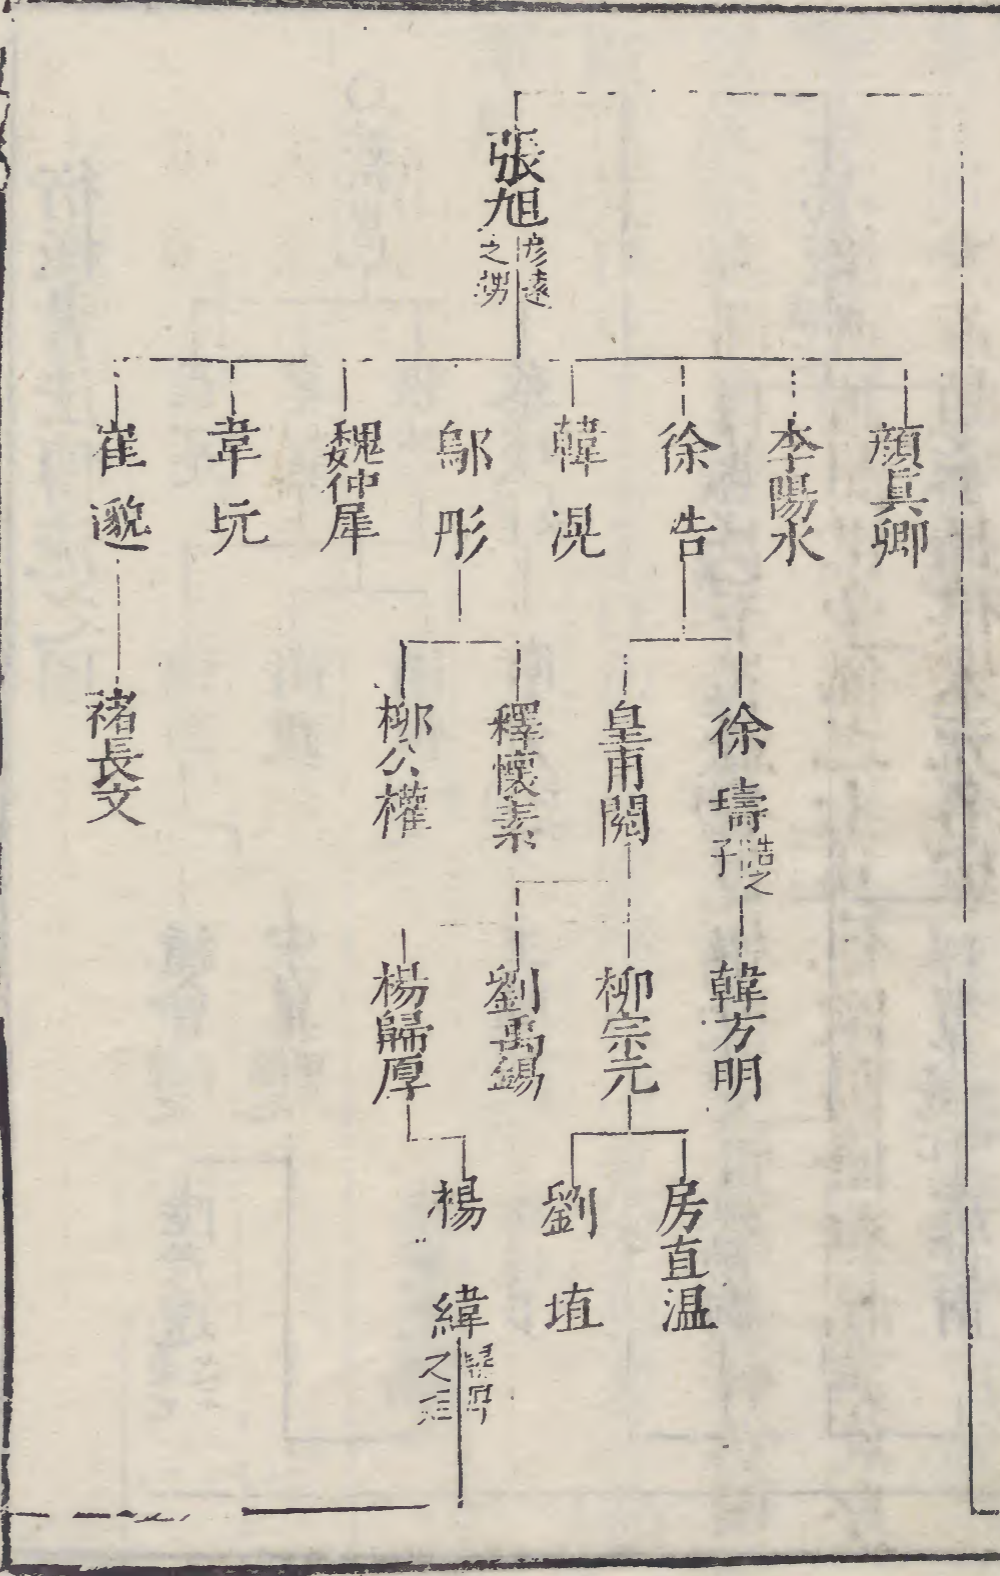 張旭
彥遠
之甥
顏真卿
李陽水
徐告
韓滉
鄔彤
魏仲犀
韋玩
崔邈
徐璹
浩之
子
皇甫閱
釋懷素
柳公權
褚長文
韓方明
柳宗元
劉禹錫
楊歸厚
房直温
劉埴
楊緯
歸厚
之姪